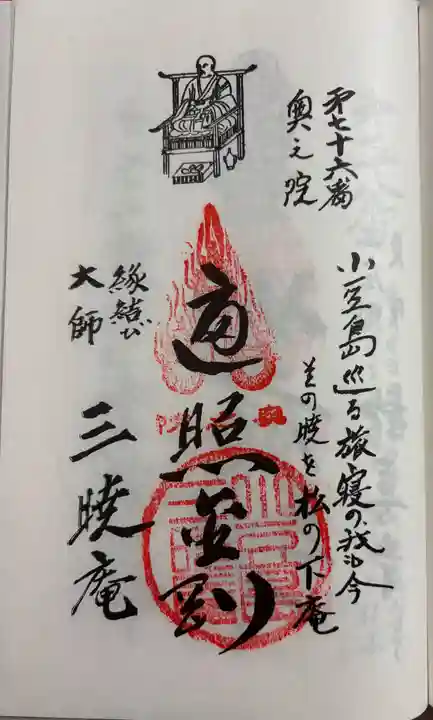 第七十六番
奥之院
小豆島巡る旅寝の我も今
差の暁を松の下庵
遍照金剛
縁結び
大師
三暁庵